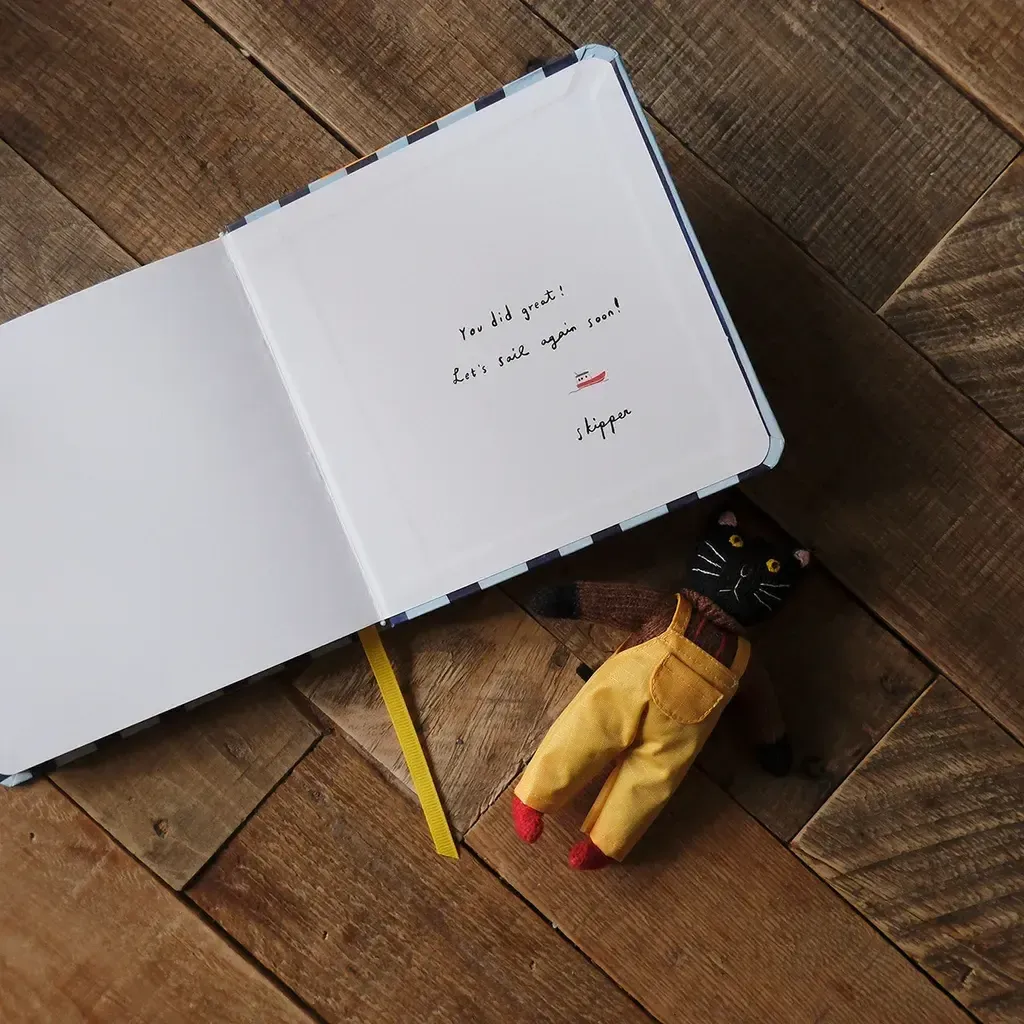 You did great!
Let's sail again soon!
skipper